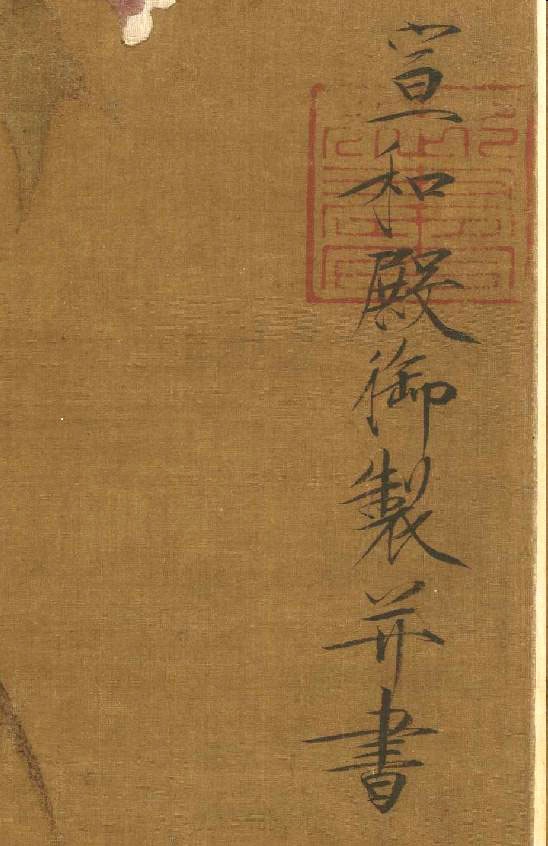 宣和殿御製并書